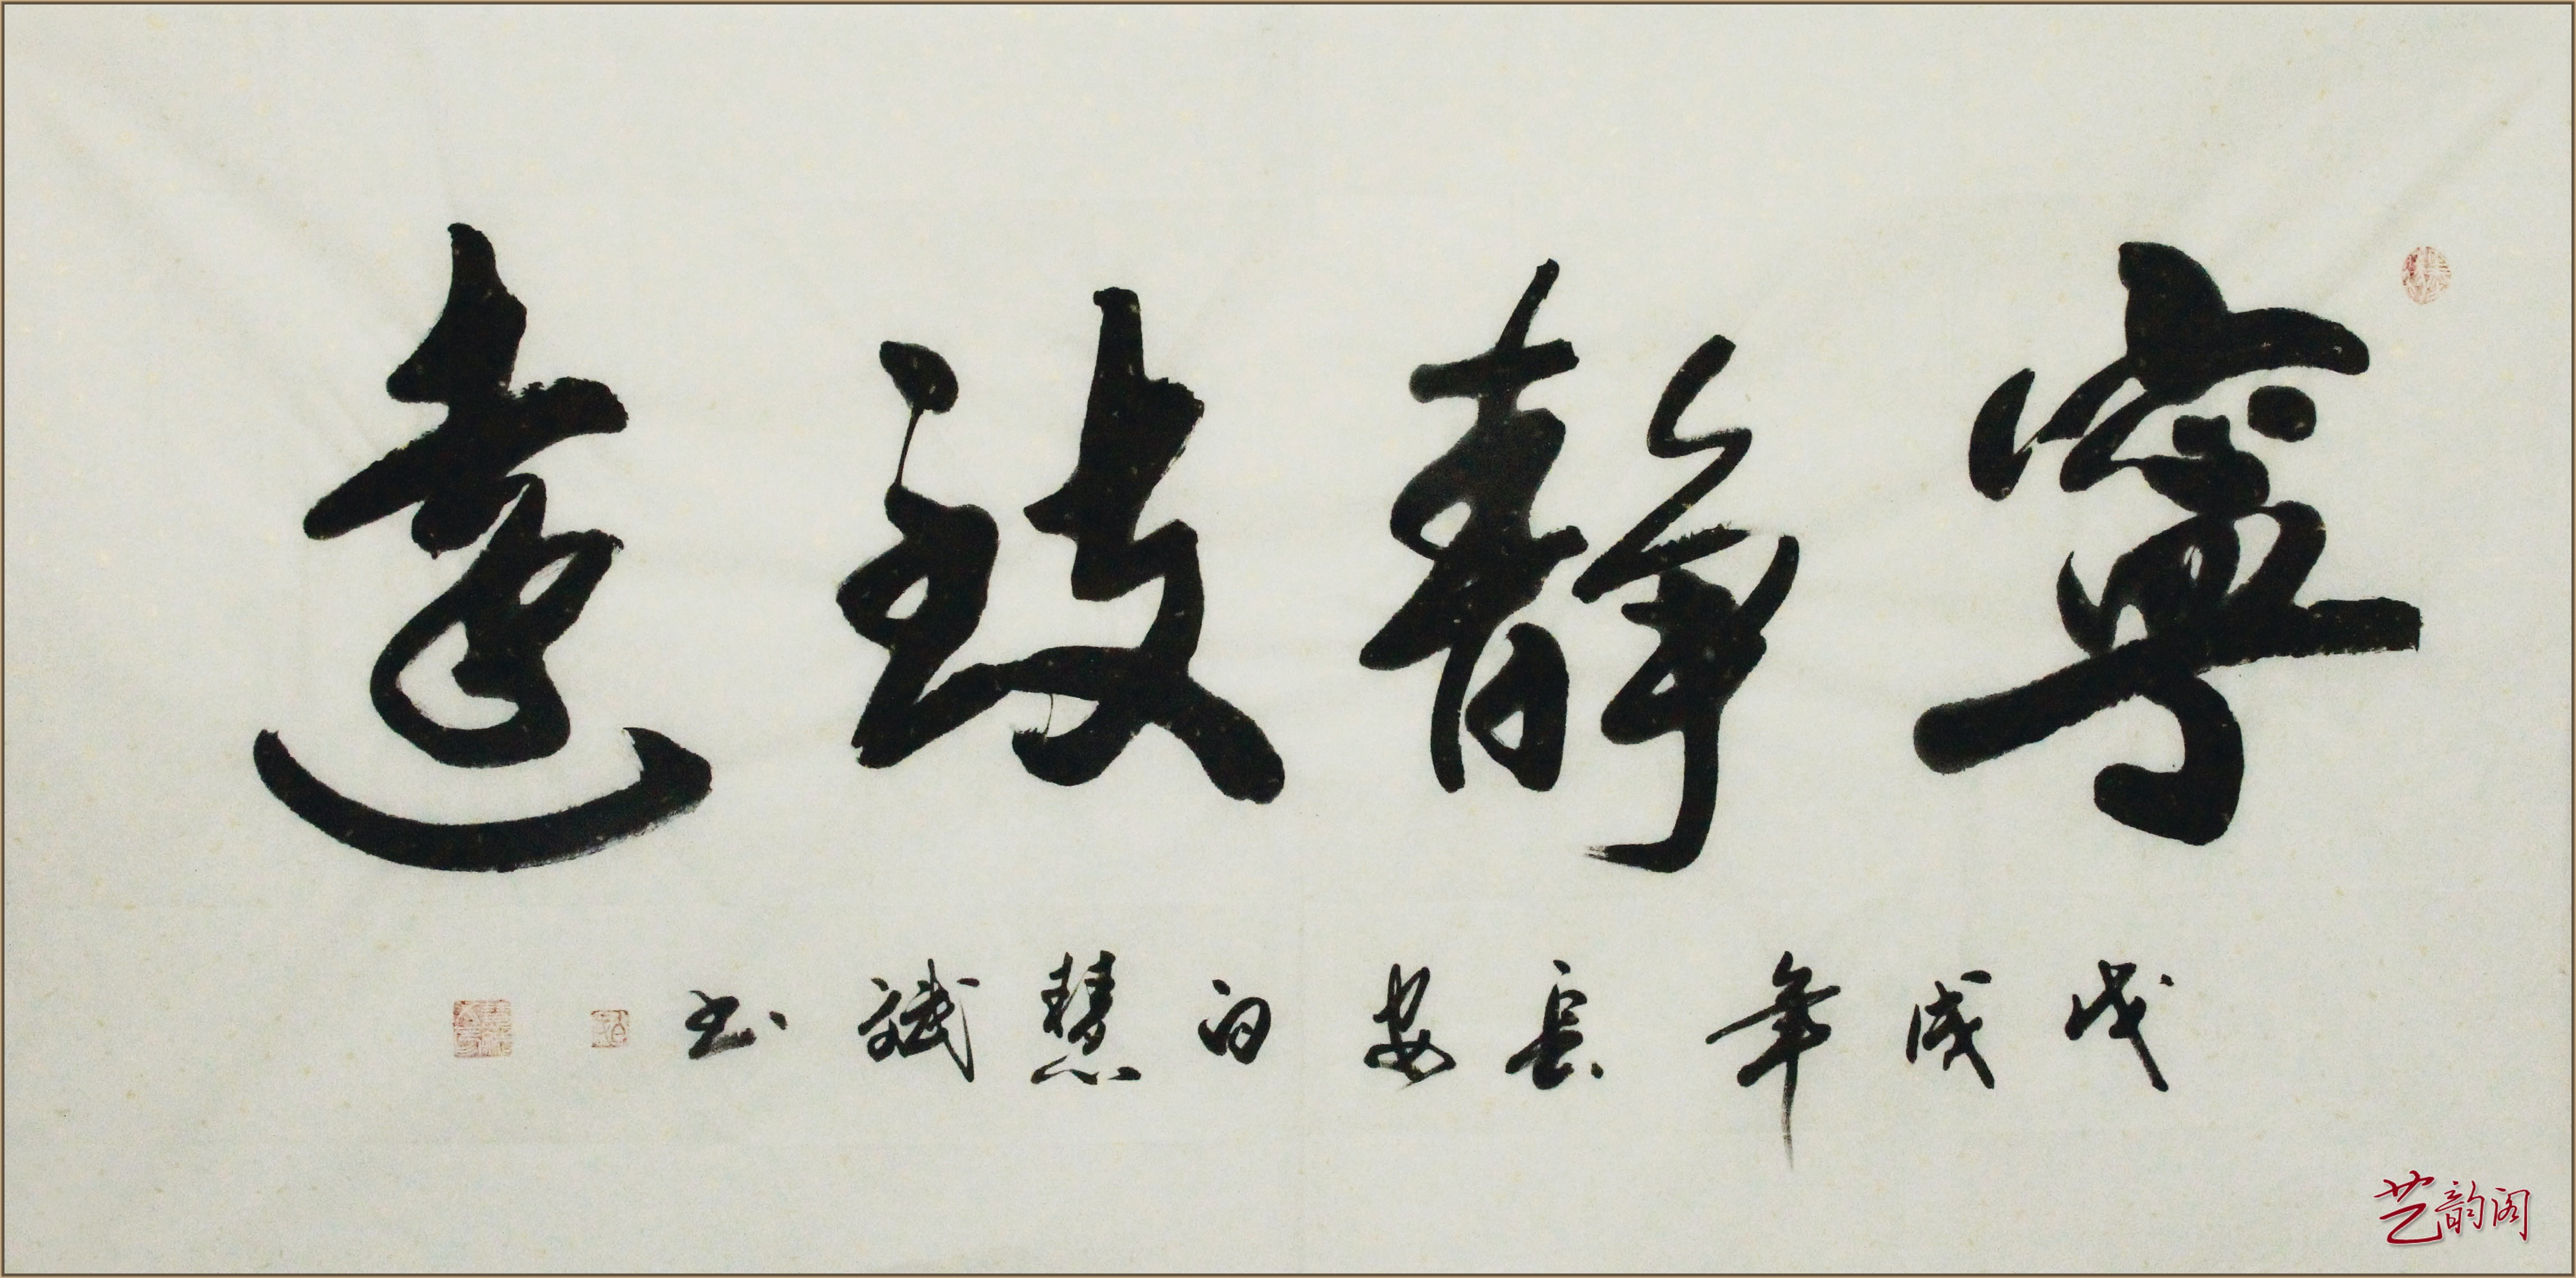 寧静致遠
戊戌年長安白慧斌书
艺韵阁